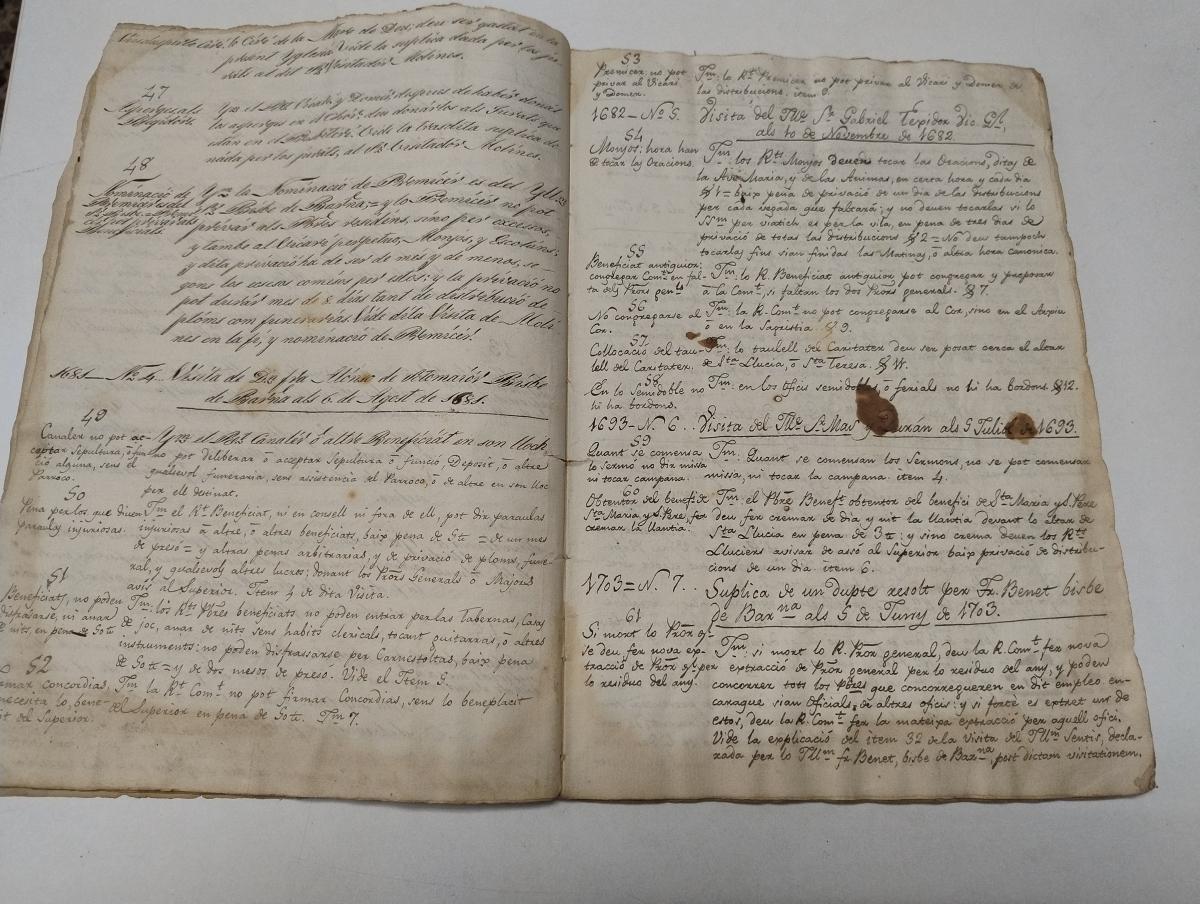 present Yglesia. Vide la suplica dada per los ju-
rats al dit Rt. Visitador Molines.
47
48
Nominació de
Ytm la Nominació de Premicér es del Yllm
Rt. Bisbe de Barna = y lo Premicér no pot
privar als Pbres residens, sino per excessos,
y tambe al Vicari perpetuo, Monjos, y Escolans;
y dita privació ha de ser de mes y de menos, se-
gons los excesos comesos per estos: y la privació no
pot durar mes de 8 dias tant de distribució de
ploms com funerarias. Vide dita Visita de Moli-
nes en la fe, y nominació de Premicér.
1681 — No. 4. Visita de Dn fra Alonso de Sotomaior Bisbe
de Barna als 6. de Agost de 1681.
49
Canaler no pot ac-
ceptar sepultura, o fun-
ció alguna, sens el
Parroco.
Ytm el Rt. Canalér ó altre Beneficiat en son lloch
no pot deliberar ó acceptar sepultura ó funció, Deposit, ó altre
qualsevol funeraria, sens assistencia del Parroco, ó de altre en son lloc
per ell destinat.
50
Pena per los que diuen
paraulas injuriosas.
Itm el Rt. Beneficiat, ni en consell ni fora de ell, pot dir paraulas
injuriosas á altre, ó altres beneficiats, baix pena de 50 tt = de un mes
de presó = y altras penas arbitrarias, y de privació de ploms, fune-
ral, y qualsevol altres lucres; donant los Prors Generals ó Majors
avis al Superior. Item 4 de dita Visita.
51
Beneficiats, no poden
disfrasarse, ni anar
de nits, en pena de 50 tt
Itm los Rts Pbres beneficiats no poden entrar per las tabernas, Casas
de joc, anar de nits sens habits clericals, tocant guitarras, ó altres
instruments: no poden disfrassarse per Carnestoltas, baix pena
de 50 tt = y de dos mesos de presó. Vide el Item 5.
52
firmar concordias,
necessita lo bene-
plit del Superior.
Itm la Rt Comt no pot firmar Concordias, sens lo beneplacit
del Superior en pena de 50 tt. Itm 7.
53
Premicer no pot
privar al Vicari
y Domer.
Itm: lo Rt Premicer no pot privar al Vicari y Domer de
las distribucions. item 9.
1682 — No 5. Visita del Ille Sr Gabriel Texidor Vic. Gl,
als 10 de Novembre de 1682.
54
Monjos: hora han
de tocar las Oracions.
Itm: los Rts Monjos deuen tocar las Oracions, ditas de
la Ave Maria, y de las Animas, en certa hora y cada dia
§ 1 = baix pena de privació de un dia de las distribucions
per cada vegada que faltará: y no deuen tocarlas si lo
SSm per viatich es per la vila, en pena de tres dias de
privació de totas las distribucions § 2 = No deu tampoch
tocarlas fins sian finidas las Matinas, ó altra hora canonica.
55
Beneficiat antiquior:
congregar Comt en fal-
ta dels Prors genls
Itm: lo R. Beneficiat antiquior pot congregar y proposar
á la Comt, si faltan los dos Prors generals. § 7.
56
No congregarse al
Cor.
Itm: la R. Comt no pot congregarse al Cor, sino en el Arxiu
ó en la Sagristia. § 9.
57
Collocació del tau-
lell del Caritater.
Itm: lo taulell del Caritater deu ser posat cerca el altar
de Sta Llucia, ó Sta Teresa. § 11.
58
En lo Semidoble no
hi ha bordons.
Itm: en los Oficis semidobles, ó ferials no hi ha bordons. § 12.
1693 — N. 6. Visita del Ille Sr Mas y Duran als 9 Juliol de 1693.
59
Quant se comensa
lo sermó no dir missa
ni tocar campana.
Itm. Quant se comensan los Sermons, no se pot comensar
missa, ni tocar la campana. item 4.
60
Obtentor del benefici de
Sta Maria y S. Pere, fer
cremar la Llantia.
Itm: el Pbre Benefit obtentor del benefici de Sta Maria y S. Pere
deu fer cremar de dia y nit la Llantia devant lo altar de
Sta Llucia en pena de 3 tt; y sino crema deuen los Rts
Lluciers avisar de assó al Superior baix privació de distribu-
cions de un dia. item 6.
1703 = N. 7. Suplica de un dupte resolt per Fr. Benet bisbe
de Barna als 5 de Juny de 1703.
61
Si mort lo Pror gl
se deu fer nova ex-
tracció de Pror gl per
lo residuo del any.
Itm: si mort lo R. Pror general, deu la R. Comt fer nova
extracció de Pror general per lo residuo del any, y poden
concorrer tots los Pbres que concorregueren en dit empleo en-
caraque sian Oficials de altres oficis: y si forte es extret un de
estos, deu la R. Comt fer la mateixa extracció per aquell ofici.
Vide la explicació del item 32 de la Visita del Illm Sentis, decla-
rada per lo Illm fr Benet, bisbe de Barna, post dictam visitationem.